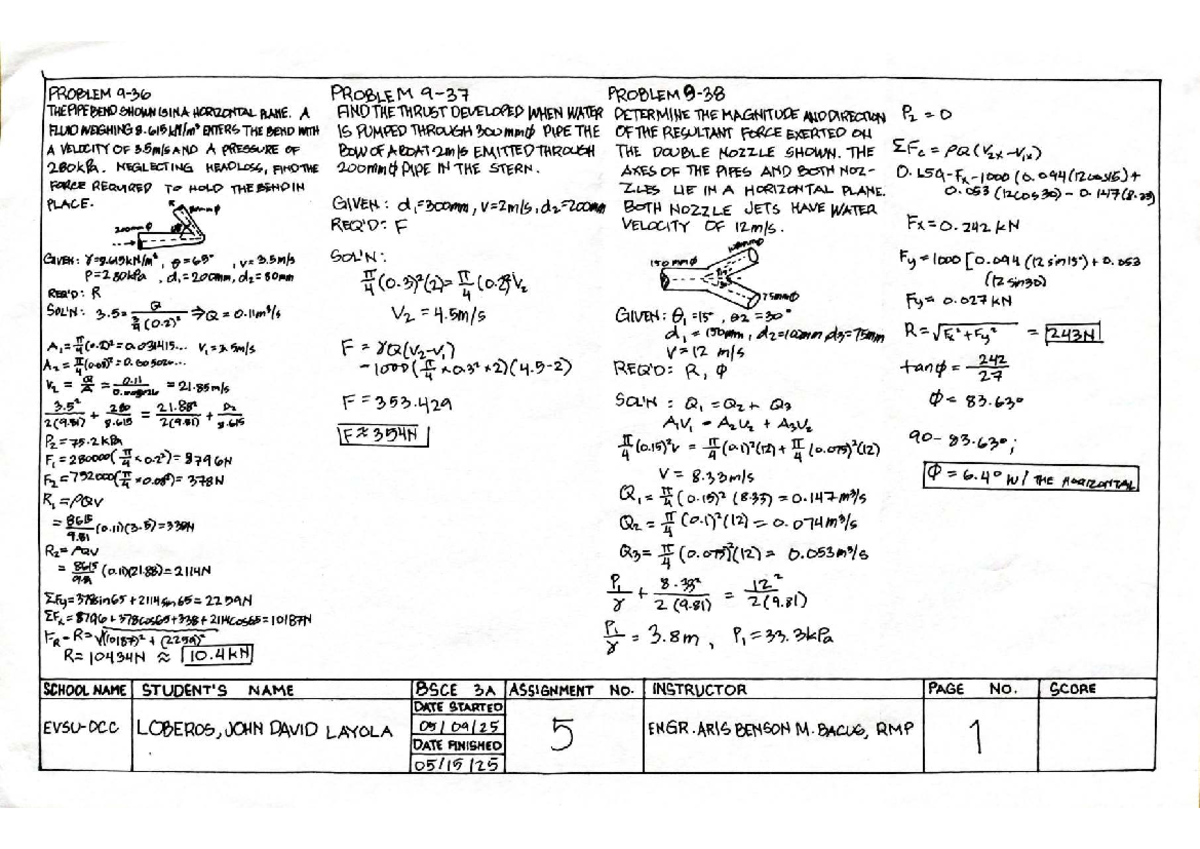 PROBLEM 9-36
THE PIPE BEND SHOWN IS IN A HORIZONTAL PLANE. A
FLUID WEIGHING 8.615 kN/m³ ENTERS THE BEND WITH
A VELOCITY OF 3.5m/s AND A PRESSURE OF
280kPa. NEGLECTING HEADLOSS, FIND THE
FORCE REQUIRED TO HOLD THE BEND IN
PLACE.
200mmφ
GIVEN: γ=8.615kN/m³, θ=65°, v=3.5m/s
P=280kPa, d₁=200mm, d₂=80mm
REQ'D: R
SOL'N: 3.5= Q / (0.2)² ⇒Q = 0.11m³/s
A₁=π/4(0.2)²=0.031415...
A₂=π/4(0.08)²=0.005026...
V₂ = Q/A = 0.11 = 21.85m/s
3.5²/2(9.81) + 280/8.615 = 21.88²/2(9.81) + P₂/8.615
P₂=75.2kPa
F₁=280000(π/4×0.2²)=8796N
F₂=752000(π/4×0.08²)=378N
R₁=ρQV
=8615/9.81(0.11)(3.5)=338N
R₂=ρQV
=8615/9.81(0.11)(21.88)=2114N
ΣFy=378sin65+2114sin65=2259N
ΣFx=8796+378cos65+338+2114cos65=10187N
FR-R=√(10187)²+(2259)²
R=10434N ≈ 10.4kN
PROBLEM 9-37
FIND THE THRUST DEVELOPED WHEN WATER
IS PUMPED THROUGH 300mmφ PIPE THE
BOW OF A BOAT 2m/s EMITTED THROUGH
200mmφ PIPE IN THE STERN.
GIVEN: d₁=300mm, v=2m/s, d₂=200mm
REQ'D: F
SOL'N:
π/4(0.3)²(2)=π/4(0.2)²V₂
V₂ = 4.5m/s
F = γQ(V₂-V₁)
=1000(π/4×0.3²×2)(4.5-2)
F=353.429
F≈354N
PROBLEM 9-38
DETERMINE THE MAGNITUDE AND DIRECTION
OF THE RESULTANT FORCE EXERTED ON
THE DOUBLE NOZZLE SHOWN. THE
AXES OF THE PIPES AND BOTH NOZ-
ZLES LIE IN A HORIZONTAL PLANE.
BOTH NOZZLE JETS HAVE WATER
VELOCITY OF 12m/s.
150mmφ
100mmφ
75mmφ
GIVEN: θ₁=15°, θ2=30°
d₁=150mm, d₂=100mm d₃=75mm
V=12 m/s
REQ'D: R, φ
SOL'N: Q₁=Q₂+Q₃
A₁V₁ = A₂V₂ + A₃V₂
π/4(0.15)²v = π/4(0.1)²(12)+π/4(0.075)²(12)
V = 8.33m/s
Q₁=π/4(0.15)²(8.33)=0.147m³/s
Q₂=π/4(0.1)²(12)=0.074m³/s
Q₃=π/4(0.075)²(12)=0.053m³/s
P₁/γ + 8.33²/2(9.81) = 12²/2(9.81)
P₁/γ = 3.8m, P₁=33.3kPa
P₂=0
ΣFc=ρQ(V₂x-V₁x)
0.659-Fx-1000(0.094(12cos15)+
0.053(12cos30)-0.147(8.33)
Fx=0.242kN
Fy=1000[0.094(12sin15°)+0.053
(12sin30)
Fy=0.027kN
R=√Fx²+Fy² = 243N
tanφ=242/27
φ=83.63°
90-83.63°;
φ=6.4° W/ THE HORIZONTAL
SCHOOL NAME STUDENT'S NAME BSCE 3A ASSIGNMENT NO. INSTRUCTOR PAGE NO. SCORE
DATE STARTED
EVSU-OCC LOBEROS, JOHN DAVID LAYOLA 05/09/25 5 ENGR. ARIS BENSON M. BACUS, RMP 1
DATE FINISHED
05/15/25